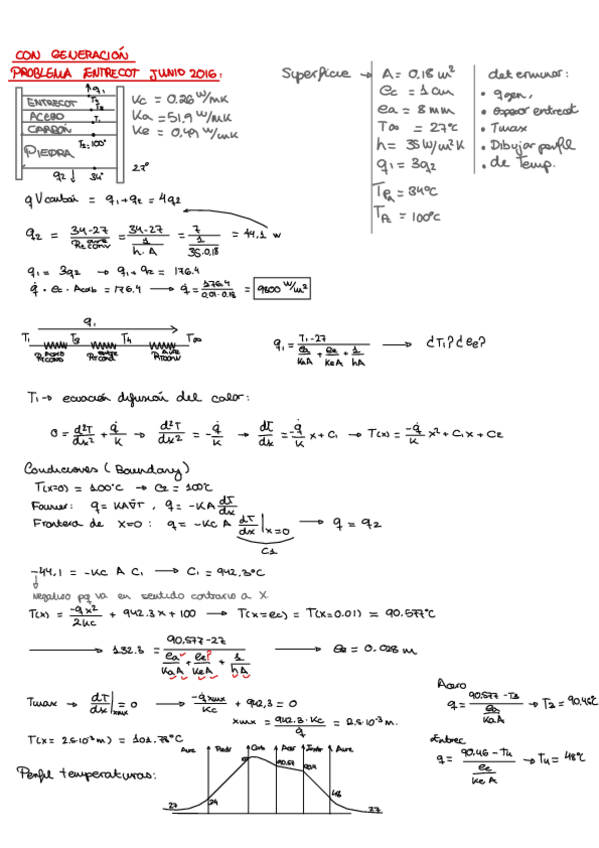 CON GENERACIÓN
PROBLEMA ENTRECOT JUNIO 2016:
q1
ENTRECOT
ACERO
CARBÓN
PIEDRA
T2=100°
27°
q2 34°
Kc = 0.26 W/mK
Ka = 51.9 W/mK
Ke = 0.49 W/mK
Superficie → A = 0.18 m²
ec = 1 cm
ea = 8 mm
T∞ = 27°C
h = 35 W/m²K
q1 = 3q2
TPa = 34°C
TPc = 100°C
determinar:
• qgen,
• Espesor entrecot
• Tmax
• Dibujar perfil
• de Temp.
q Vcarbón = q1+q2 = 4q2
q2 = 34-27 / Rt conv = 34-27 / 1/h.A = 7 / 1/35.0,18 = 44,1 w
q1 = 3q2 → q1+q2 = 176.4
q̇ · ec · Acarb = 176.4 → q̇ = 176.4 / 0,01·0.18 = 9800 W/m²
q1
T1 T3 T4 T∞
q1 = T1-27 / ea/KaA + ee/KeA + 1/hA → ¿T1? ¿ee?
T1 → ecuación difusión del calor:
0 = d²T/dx² + q̇/K → d²T/dx² = -q̇/K → dT/dx = -q̇/K x + C1 → T(x) = -q̇/K x² + C1x + C2
Condiciones (Boundary)
T(x=0) = 100°C → C2 = 100°C
Fourier: q = KA∇T , q = -KA dT/dx
Frontera de x=0: q = -Kc A dT/dx |x=0 → q = q2
C1
-44,1 = -Kc A C1 → C1 = 942,3°C
Negativo pq va en sentido contrario a X
T(x) = -q x²/2Kc + 942.3x + 100 → T(x=ec) = T(x=0.01) = 90.577°C
→ 132.3 = 90,577-27 / ea/KaA + ee/KeA + 1/hA → ee = 0.028 m
Tmax → dT/dx |xmax = 0 → -q̇ xmax/Kc + 942,3 = 0
xmax = 942.3·Kc / q̇ = 2.5·10⁻³ m.
T(x = 2.5·10⁻³ m) = 101.78°C
Acero
q = 90.577-T3 / ea/KaA → T3 = 90,46°C
Entrec
q = 90.46-T4 / ee/KeA → T4 = 48°C
Perfil temperaturas:
Aire Piedr Carb Acer Entr Aire
90.57
48
27
27